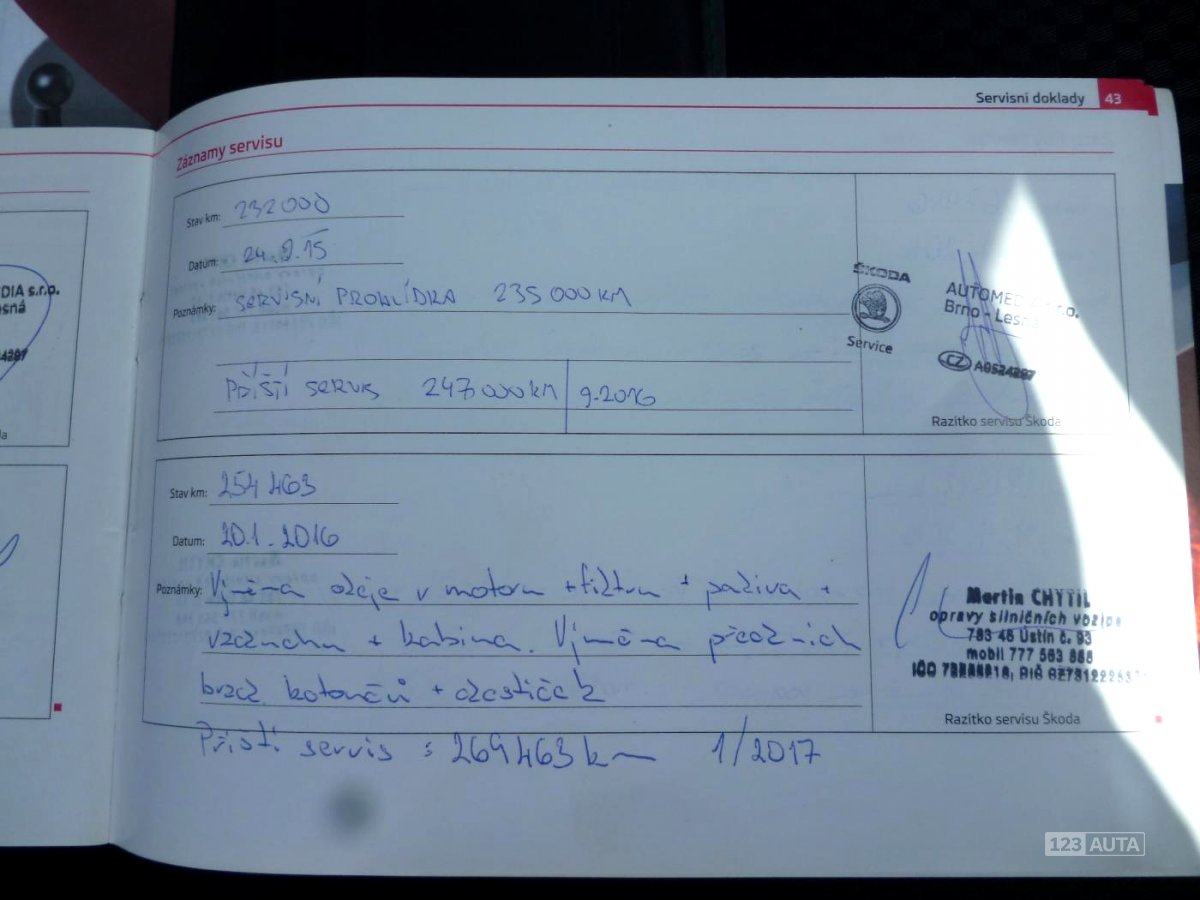 Servisní doklady 43
Záznamy servisu
Stav km: 232000
Datum: 24.9.15
Poznámky: SERVISNÍ PROHLÍDKA 235 000 KM
PŘÍŠTÍ SERVIS 247 000 KM 9.2016
ŠKODA
Service
AUTOMEDIA s.r.o.
Brno - Lesná
CZ
Razítko servisu Škoda
DIA s.r.o.
esná
Stav km: 254 463
Datum: 20.1.2016
Poznámky: Výměna oleje v motoru + filtru + paliva +
vzduchu + kabina. Výměna předních
brzd. kotoučů + destiček
Příští servis : 269463 km 1/2017
Martin CHYTIL
opravy silničních vozidel
783 46 Ústín č. 93
mobil 777 563
Razítko servisu Škoda
123 AUTA